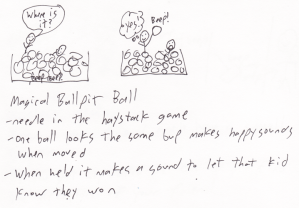 Where is
it?
yes!
Beep!
beep beep!
Magical Ballpit Ball
- needle in the haystack game
- one ball looks the same but makes happy sounds
when moved
- When held it makes a sound to let that kid
know they won